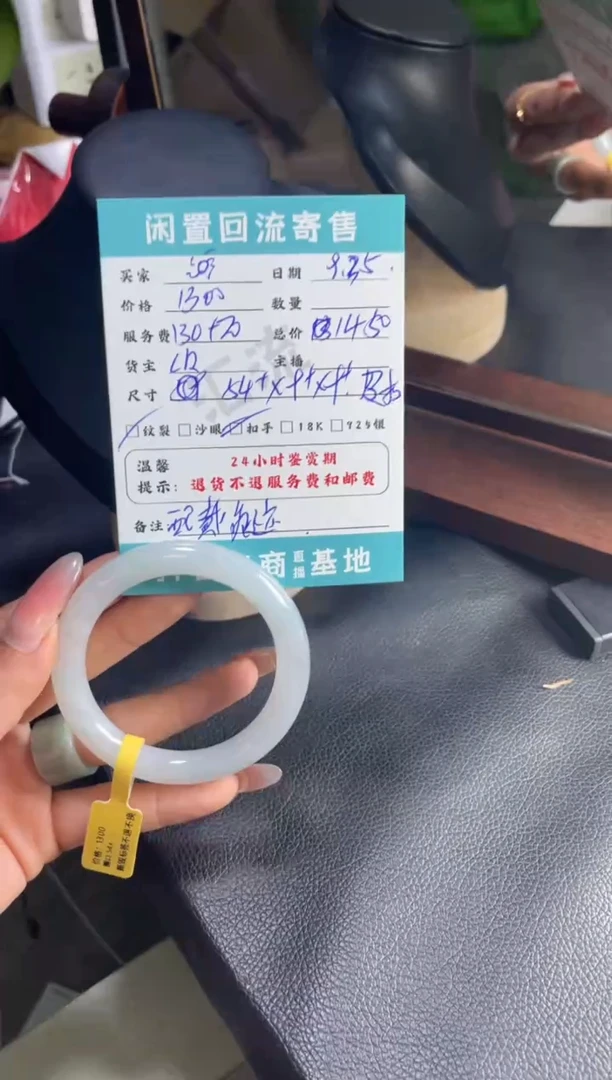 闲置回流寄售
买家 日期 9.25.
价格 1300 数量
服务费 130+20 总价 1450
货主 主播
尺寸 54+×9+×9+
□纹裂 □沙眼 □扣手 □18K □925银
温馨提示: 24小时鉴赏期
退货不退服务费和邮费
备注 配戴痕迹
商直播基地
价格:1300
撕毁标签不退不换